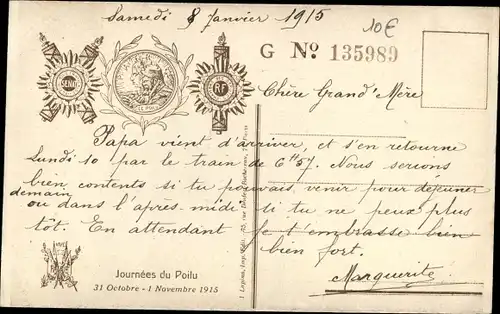 Samedi 8 Janvier 1915
10€
G No. 135989
SENAT
RF
Chère Grand'Mère
Papa vient d'arriver, et s'en retourne
Lundi 10 par le train de 6H37. Nous serions
bien contents si tu pouvais venir pour déjeuner
demain
ou dans l'après midi si tu ne peux plus
tôt. En attendant je t'embrasse bien
bien fort.
Marguerite
Journées du Poilu
31 Octobre - 1 Novembre 1915